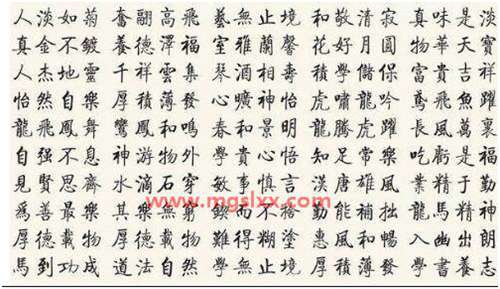 人淡如菊 奮翮高飛 藝無止境 和敬清寂 真味是淡
真金不鍍 養德澤福 室雅蘭馨 花好月圓 物華天寶
人杰地靈 千祥雲集 琴酒相壽 學儲保 富貴吉祥
怡然自樂 厚積薄發 曠神怡 虎嘯龍吟 鳶飛魚躍
龍飛鳳舞 鸞鳳和鳴 春和景明 龍騰虎躍 長風萬里
自强不息 神游物外 學貴心悟 知足常樂 吃虧是福
見賢思齊 水滴石穿 敏事慎言 漢唐雄風 業精於勤
www.mgslxx.com
爲善最樂 其樂無窮 鍥而不捨 勤能補拙 龍馬精神
厚德載物 厚德載物 難得糊塗 惠風和暢 入幽出朗
馬到功成 道法自然 學無止境 厚積薄發 學書養志